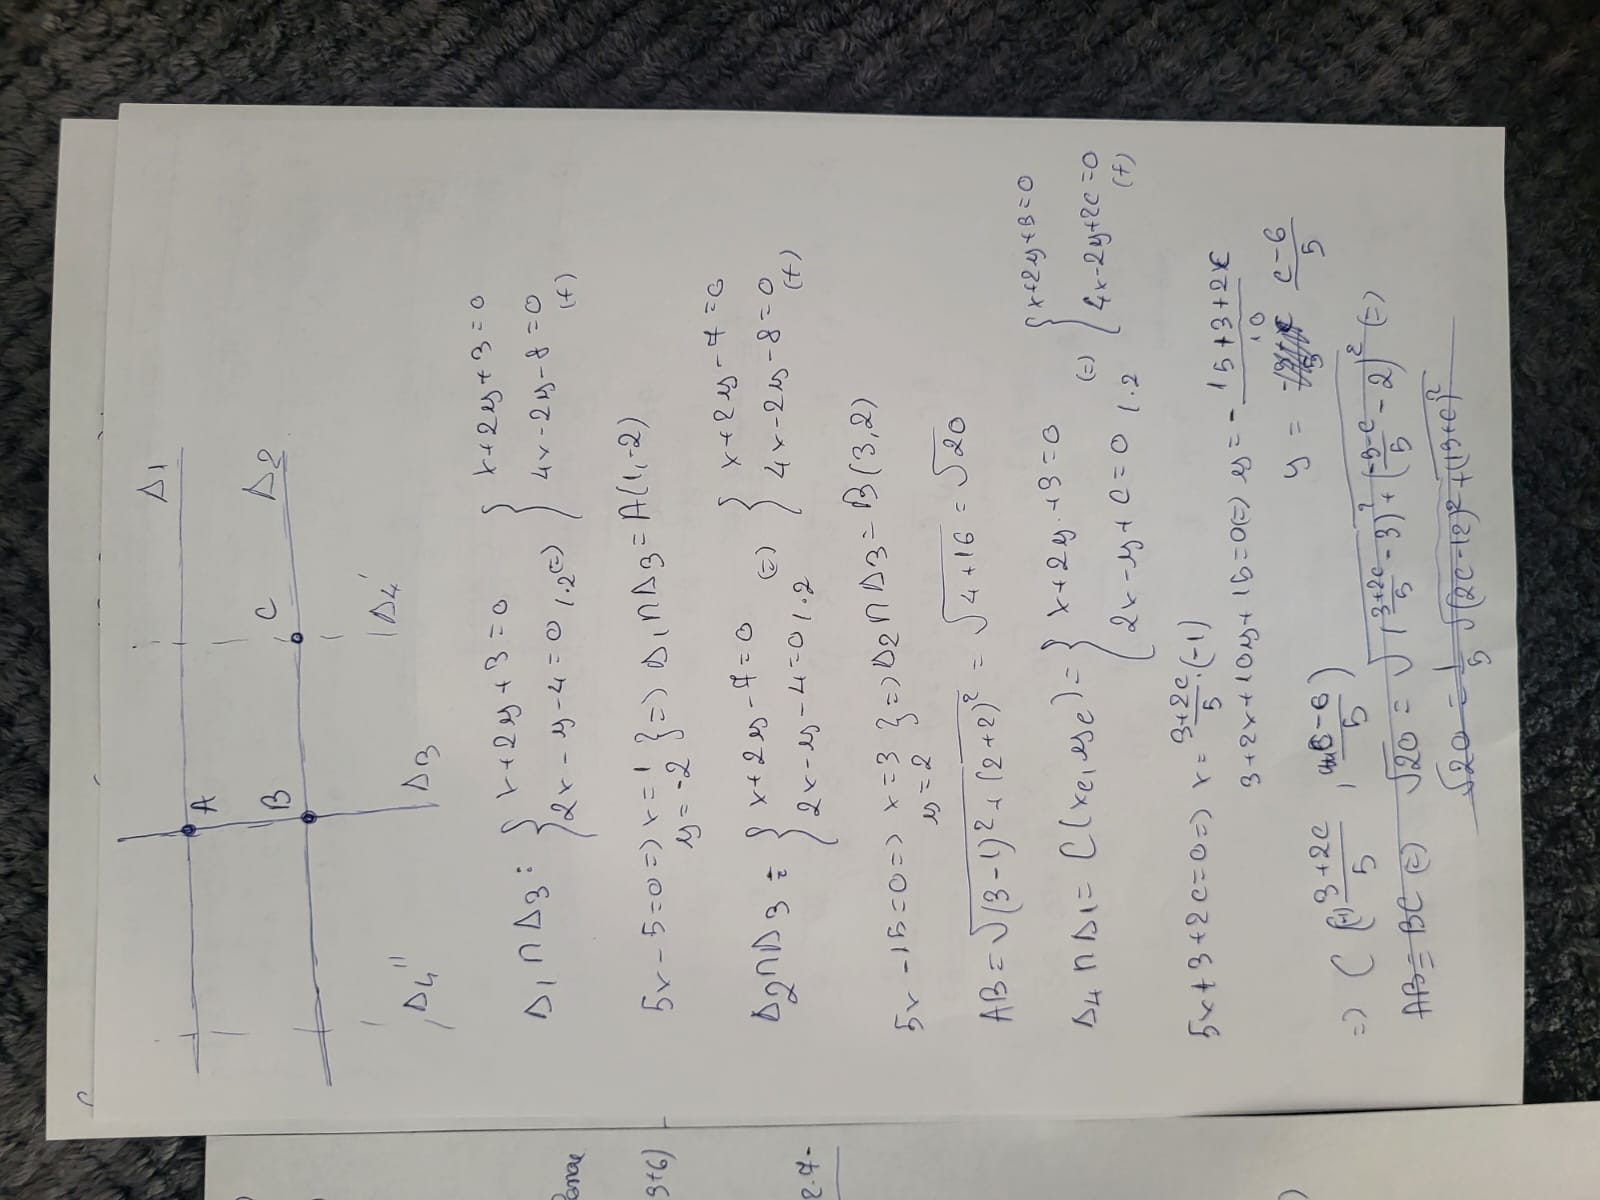 Δ1
A
B
C
Δ2
Δ4''
Δ3
Δ4'
Δ1 ∩ Δ3 : { x+2y+3=0 { x+2y+3=0
2x-y-4=0 /·2 (=) 4x-2y-8=0
(+)
5x-5=0 => x=1 } => Δ1∩Δ3 = A(1,-2)
y=-2
Δ2∩Δ3 = { x+2y-7=0 (=) { x+2y-7=0
2x-y-4=0 /·2 4x-2y-8=0
(+)
5x-15=0 => x=3 } => Δ2∩Δ3 = B(3,2)
y=2
AB = √((3-1)² + (2+2)²) = √(4+16) = √20
Δ4∩Δ1 = C(xc, yc) = { x+2y+3=0 (=) { x+2y+3=0
2x-y+c=0 /·2 4x-2y+2c=0
(+)
5x+3+2c=0 => x = (3+2c)/5 ·(-1)
3+2x+10y+15=0 (=) y = - (15+3+2c)/10
y = (c-6)/5
=> C ((-) (3+2c)/5 , (c-6)/5)
AB = BC (=) √20 = √(((3+2c)/5 - 3)² + ((-3-c)/5 - 2)²) (=)
√20 = 1/5 √((2c-12)² + (13+c)²)
Δ
9+6)
2.7-